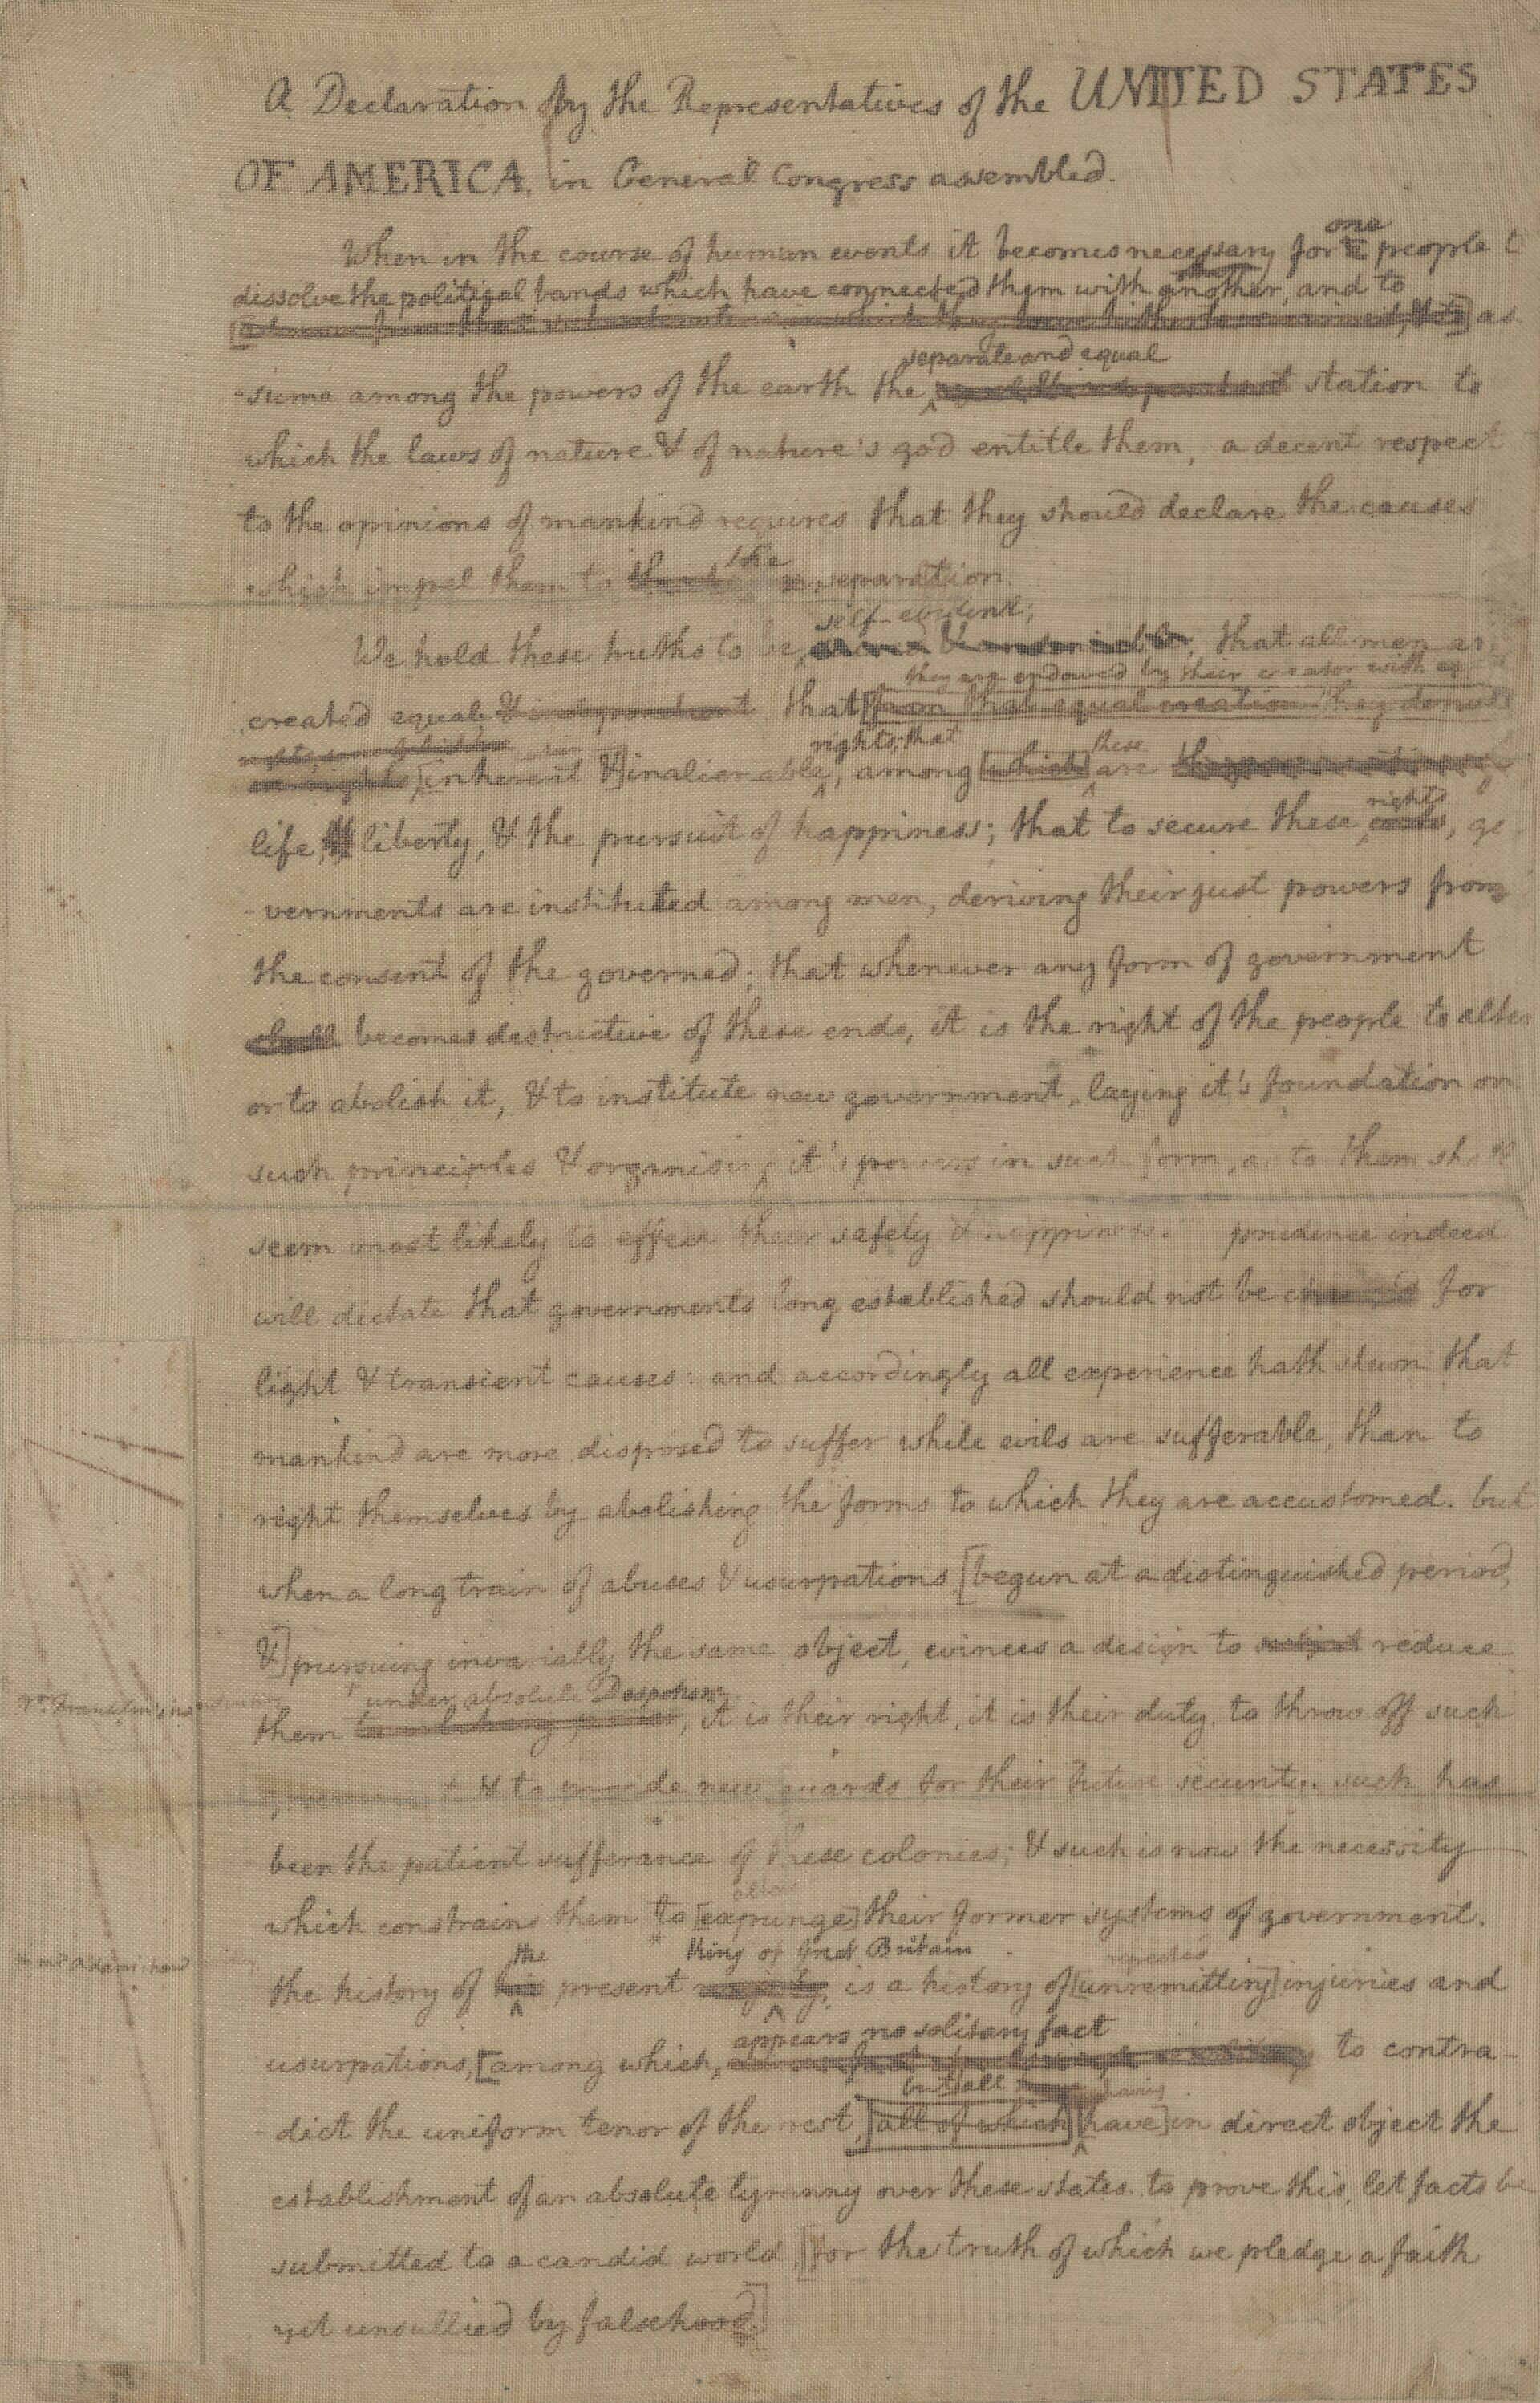 A Declaration by the Representatives of the UNITED STATES
OF AMERICA, in General Congress assembled.
one
When in the course of human events it becomes necessary for people t
dissolve the political bands which have connected them with another, and to
as
separate and equal
-sume among the powers of the earth the station to
which the laws of nature & of nature's god entitle them, a decent respect
to the opinions of mankind requires that they should declare the causes
the
which impel them to separation.
self-evident;
We hold these truths to be, that all men ar
they are endowed by their creator with
created equal & independent that [from that equal creation they derive
rights; that these
[inherent &] inalienable, among [which] are
rights
life, liberty, & the pursuit of happiness; that to secure these, go
-vernments are instituted among men, deriving their just powers from
the consent of the governed; that whenever any form of government
shall becomes destructive of these ends, it is the right of the people to alter
or to abolish it, & to institute new government, laying it's foundation on
such principles & organising it's powers in such form, as to them shall
seem most likely to effect their safety & happiness. prudence indeed
will dictate that governments long established should not be for
light & transient causes: and accordingly all experience hath shewn that
mankind are more disposed to suffer while evils are sufferable, than to
right themselves by abolishing the forms to which they are accustomed. but
when a long train of abuses & usurpations, [begun at a distinguished period,
&] pursuing invariably the same object, evinces a design to reduce
* under absolute Despotism
them to arbitrary power, it is their right, it is their duty, to throw off such
& to provide new guards for their future security. such has
been the patient sufferance of these colonies; & such is now the necessity
alter
which constrains them to [expunge] their former systems of government.
* mr Adams' hand
the * King of Great Britain repeated
the history of his present majesty, is a history of [unremitting] injuries and
appears no solitary fact
usurpations, [among which, to contra-
but all having
-dict the uniform tenor of the rest, [all of which] [have] in direct object the
establishment of an absolute tyranny over these states. to prove this, let facts be
submitted to a candid world, [for the truth of which we pledge a faith
yet unsullied by falsehood.]